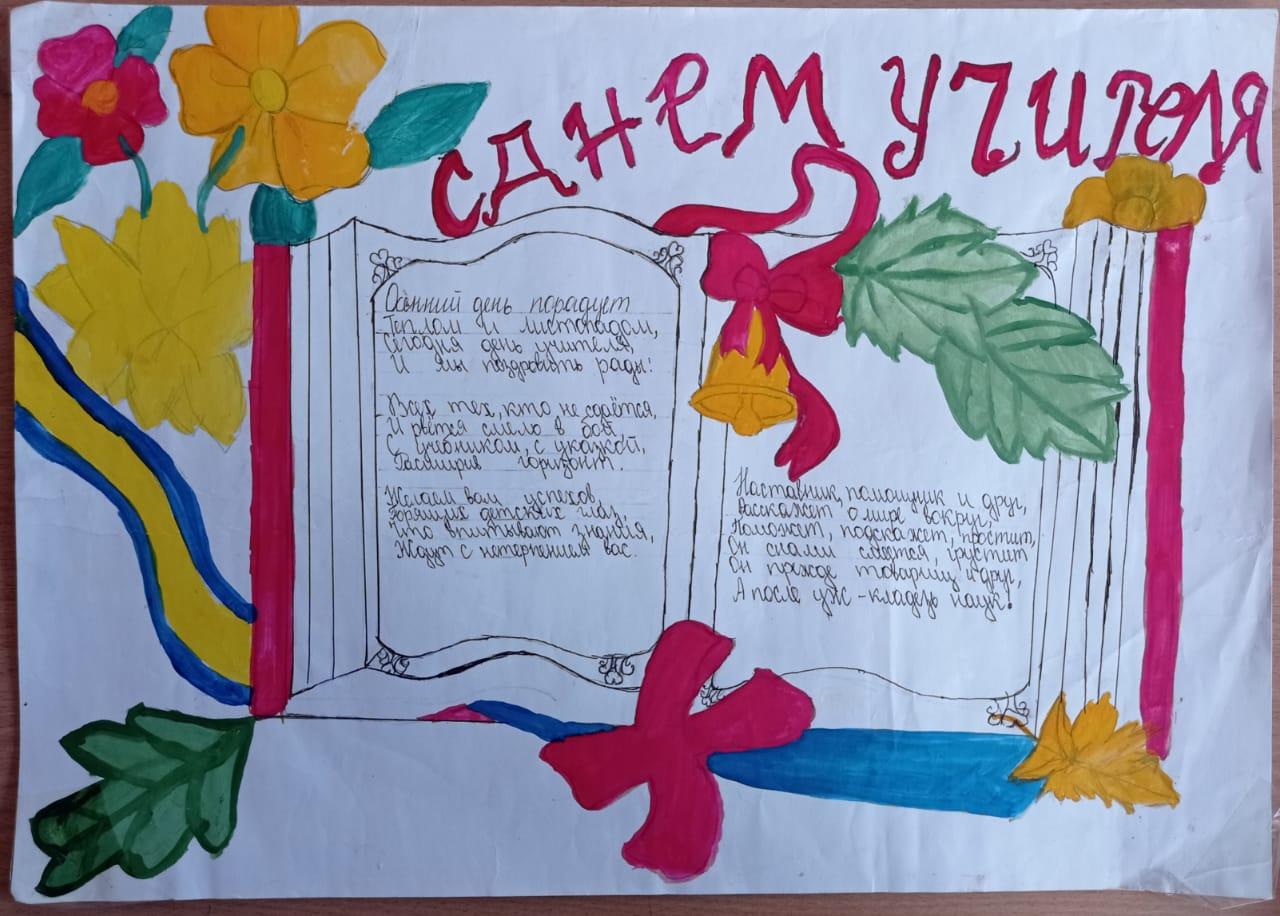 С ДНЕМ УЧИТЕЛЯ
Осенний день порадует
Теплом и листопадом,
Сегодня день учителя,
И мы поздравить рады!
Всех тех, кто не сдаётся,
И рвётся смело в бой
С учебником, с указкой,
Расширив горизонт.
Желаем вам успехов,
Горящих детских глаз,
Что впитывают знания,
Ждут с нетерпением вас.
Наставник, помощник и друг,
Расскажет о мире вокруг,
Поможет, подскажет, простит,
Он снами смеётся, грустит
Он прежде товарищ и друг,
А после уж - кладезь наук!